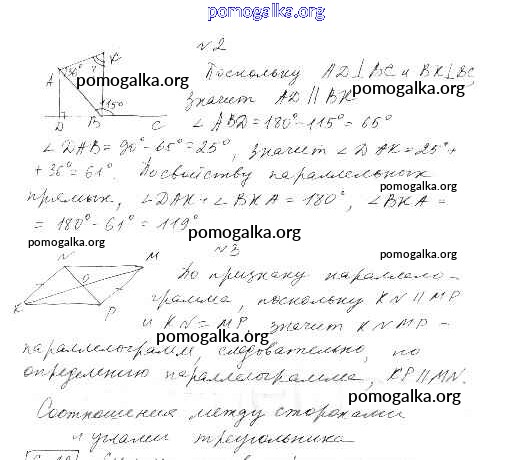 pomogalka.org
№2
Поскольку AD⊥BC и BK⊥BC
pomogalka.org
A 36° ? K
Значит AD || BK
D B 115° C
∠ABD = 180° - 115° = 65°
∠DAB = 90° - 65° = 25°, значит ∠DAK = 25° +
+ 36° = 61°. По свойству параллельных
pomogalka.org
прямых, ∠DAK + ∠BKA = 180°, ∠BKA =
= 180° - 61° = 119°
pomogalka.org
pomogalka.org
№3
N M
pomogalka.org
По признаку параллело-
O
грамма, поскольку KN || MP
K P
и KN = MP, значит KNMP -
pomogalka.org
параллелограмм, следовательно, по
определению параллелограмма, KP || MN.
pomogalka.org
Соотношения между сторонами
и углами треугольника